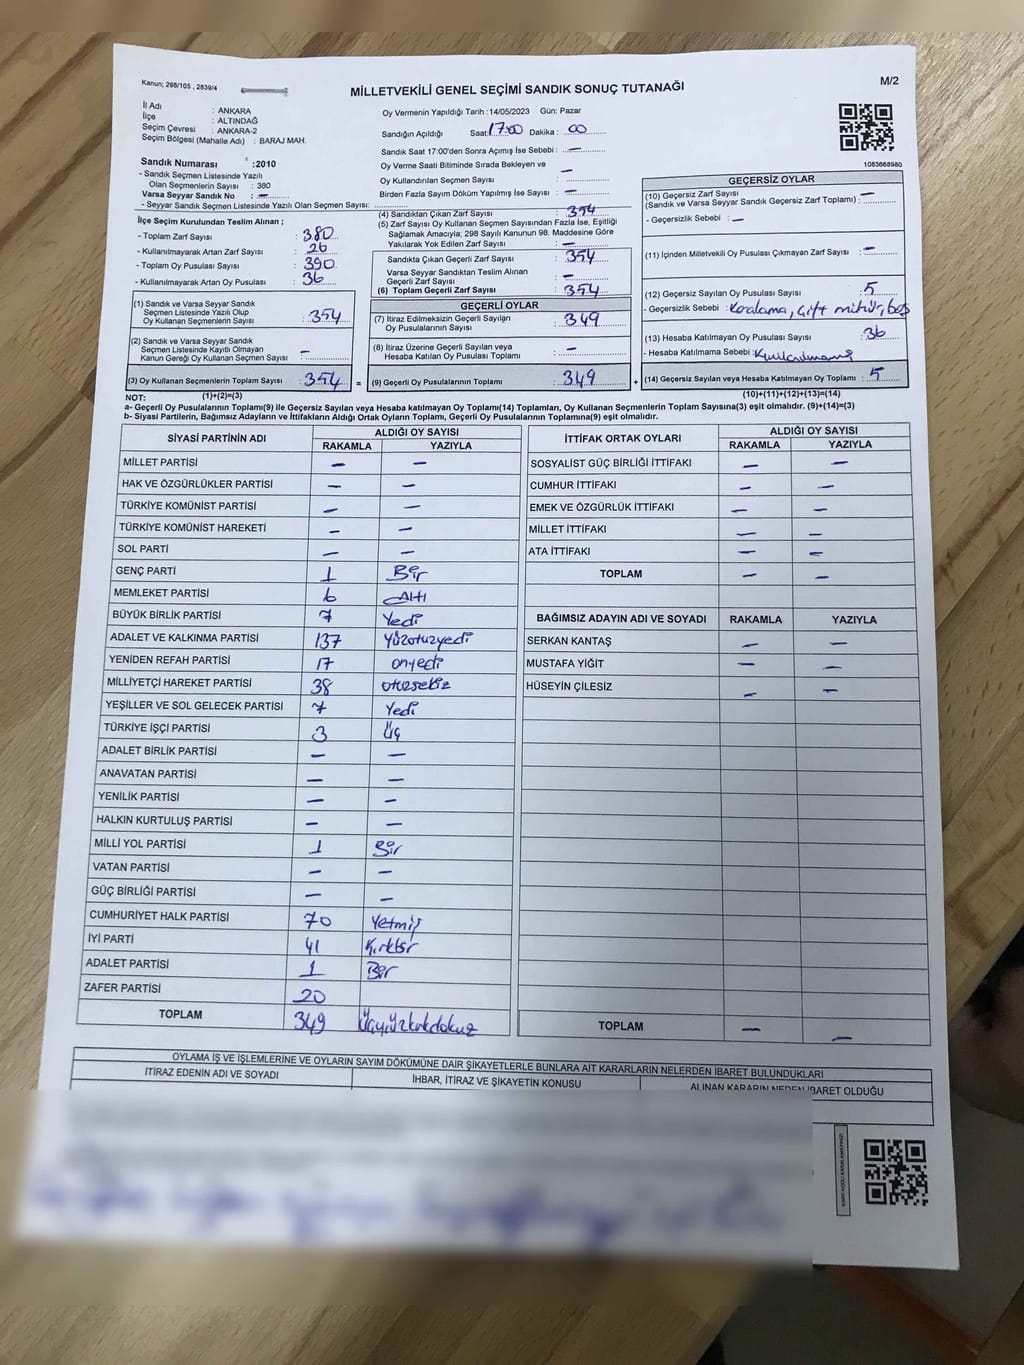 Kanun; 298/105 , 2839/4
MİLLETVEKİLİ GENEL SEÇİMİ SANDIK SONUÇ TUTANAĞI
M/2
İl Adı : ANKARA
İlçe : ALTINDAĞ
Seçim Çevresi : ANKARA-2
Seçim Bölgesi (Mahalle Adı) : BARAJ MAH.
Sandık Numarası :2010
- Sandık Seçmen Listesinde Yazılı
Olan Seçmenlerin Sayısı : 380
Varsa Seyyar Sandık No : —
- Seyyar Sandık Seçmen Listesinde Yazılı Olan Seçmen Sayısı:
İlçe Seçim Kurulundan Teslim Alınan ;
- Toplam Zarf Sayısı : 380
- Kullanılmayarak Artan Zarf Sayısı : 26
- Toplam Oy Pusulası Sayısı : 390
- Kullanılmayarak Artan Oy Pusulası : 36
(1) Sandık ve Varsa Seyyar Sandık
Seçmen Listesinde Yazılı Olup
Oy Kullanan Seçmenlerin Sayısı : 354
(2) Sandık ve Varsa Seyyar Sandık
Seçmen Listesinde Kayıtlı Olmayan
Kanun Gereği Oy Kullanan Seçmen Sayısı : —
(3) Oy Kullanan Seçmenlerin Toplam Sayısı : 354 =
Oy Vermenin Yapıldığı Tarih :14/05/2023 Gün: Pazar
Sandığın Açıldığı Saat: 17:00 Dakika : 00
Sandık Saat 17:00'den Sonra Açımış İse Sebebi : —
Oy Verme Saati Bitiminde Sırada Bekleyen ve
Oy Kullandırılan Seçmen Sayısı : —
Birden Fazla Sayım Döküm Yapılmış İse Sayısı : —
(4) Sandıktan Çıkan Zarf Sayısı : 354
(5) Zarf Sayısı Oy Kullanan Seçmen Sayısından Fazla İse, Eşitliği
Sağlamak Amacıyla; 298 Sayılı Kanunun 98. Maddesine Göre
Yakılarak Yok Edilen Zarf Sayısı : —
Sandıkta Çıkan Geçerli Zarf Sayısı : 354
Varsa Seyyar Sandıktan Teslim Alınan
Geçerli Zarf Sayısı : —
(6) Toplam Geçerli Zarf Sayısı : 354
GEÇERLİ OYLAR
(7) İtiraz Edilmeksizin Geçerli Sayılan
Oy Pusulalarının Sayısı : 349
(8) İtiraz Üzerine Geçerli Sayılan veya
Hesaba Katılan Oy Pusulası Toplamı : —
(9) Geçerli Oy Pusulalarının Toplamı : 349 +
1083668980
GEÇERSİZ OYLAR
(10) Geçersiz Zarf Sayısı
(Sandık ve Varsa Seyyar Sandık Geçersiz Zarf Toplamı) : —
- Geçersizlik Sebebi : —
(11) İçinden Milletvekili Oy Pusulası Çıkmayan Zarf Sayısı : —
(12) Geçersiz Sayılan Oy Pusulası Sayısı : 5
- Geçersizlik Sebebi : Karalama, çift mühür, boş
(13) Hesaba Katılmayan Oy Pusulası Sayısı : 36
- Hesaba Katılmama Sebebi :
(14) Geçersiz Sayılan veya Hesaba Katılmayan Oy Toplamı : 5
NOT: (1)+(2)=(3) (10)+(11)+(12)+(13)=(14)
a- Geçerli Oy Pusulalarının Toplamı(9) ile Geçersiz Sayılan veya Hesaba katılmayan Oy Toplamı(14) Toplamları, Oy Kullanan Seçmenlerin Toplam Sayısına(3) eşit olmalıdır. (9)+(14)=(3)
b- Siyasi Partilerin, Bağımsız Adayların ve İttifakların Aldığı Ortak Oyların Toplamı, Geçerli Oy Pusulalarının Toplamına(9) eşit olmalıdır.
SİYASİ PARTİNİN ADI ALDIĞI OY SAYISI
RAKAMLA YAZIYLA
MİLLET PARTİSİ — —
HAK VE ÖZGÜRLÜKLER PARTİSİ — —
TÜRKİYE KOMÜNİST PARTİSİ — —
TÜRKİYE KOMÜNİST HAREKETİ — —
SOL PARTİ — —
GENÇ PARTİ 1 Bir
MEMLEKET PARTİSİ 6 Altı
BÜYÜK BİRLİK PARTİSİ 7 Yedi
ADALET VE KALKINMA PARTİSİ 137 Yüzotuzyedi
YENİDEN REFAH PARTİSİ 17 onyedi
MİLLİYETÇİ HAREKET PARTİSİ 38 otuzsekiz
YEŞİLLER VE SOL GELECEK PARTİSİ 7 Yedi
TÜRKİYE İŞÇİ PARTİSİ 3 Üç
ADALET BİRLİK PARTİSİ — —
ANAVATAN PARTİSİ — —
YENİLİK PARTİSİ — —
HALKIN KURTULUŞ PARTİSİ — —
MİLLİ YOL PARTİSİ 1 Bir
VATAN PARTİSİ — —
GÜÇ BİRLİĞİ PARTİSİ — —
CUMHURİYET HALK PARTİSİ 70 Yetmiş
İYİ PARTİ 41 Kırkbir
ADALET PARTİSİ 1 Bir
ZAFER PARTİSİ 20
TOPLAM 349 Üçyüzkırkdokuz
İTTİFAK ORTAK OYLARI ALDIĞI OY SAYISI
RAKAMLA YAZIYLA
SOSYALİST GÜÇ BİRLİĞİ İTTİFAKI — —
CUMHUR İTTİFAKI — —
EMEK VE ÖZGÜRLÜK İTTİFAKI — —
MİLLET İTTİFAKI — —
ATA İTTİFAKI — —
TOPLAM — —
BAĞIMSIZ ADAYIN ADI VE SOYADI RAKAMLA YAZIYLA
SERKAN KANTAŞ — —
MUSTAFA YİĞİT — —
HÜSEYİN ÇİLESİZ — —
TOPLAM — —
OYLAMA İŞ VE İŞLEMLERİNE VE OYLARIN SAYIM DÖKÜMÜNE DAİR ŞİKAYETLERLE BUNLARA AİT KARARLARIN NELERDEN İBARET BULUNDUKLARI
İTİRAZ EDENİN ADI VE SOYADI İHBAR, İTİRAZ VE ŞİKAYETİN KONUSU ALINAN KARARIN NEDEN İBARET OLDUĞU